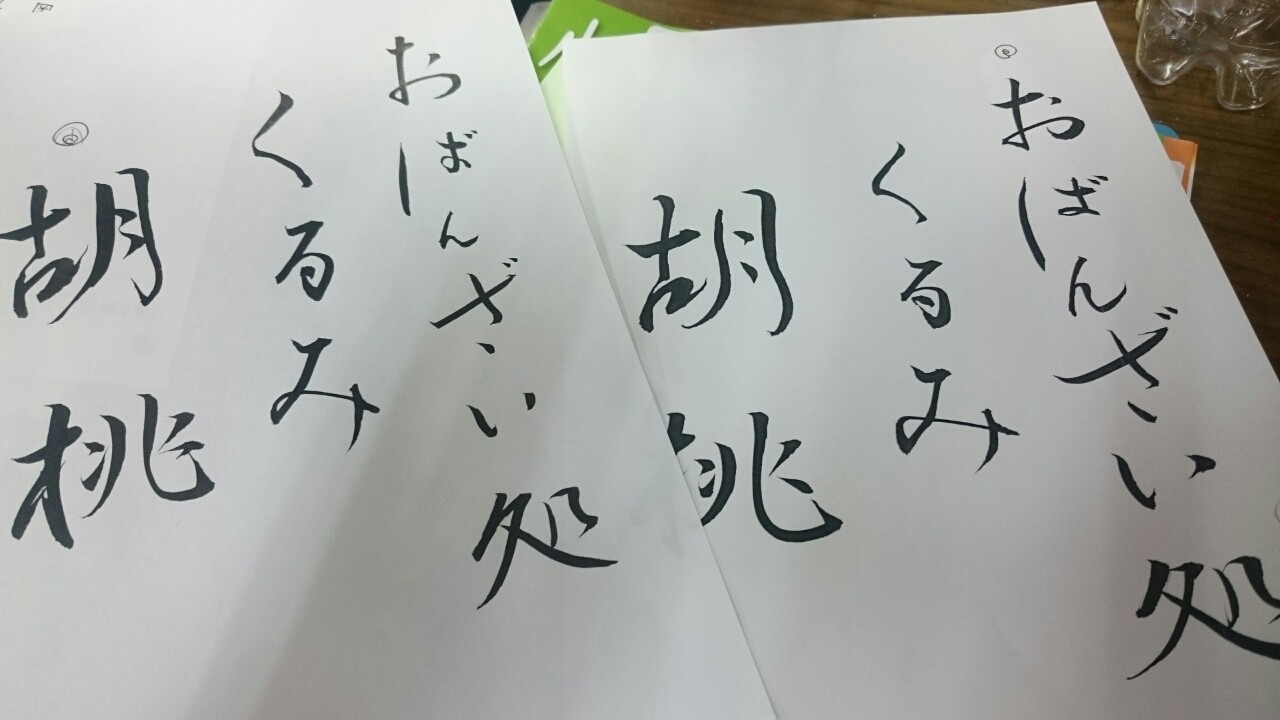 おばんざい処
くるみ
胡桃
おばんざい処
くるみ
胡桃